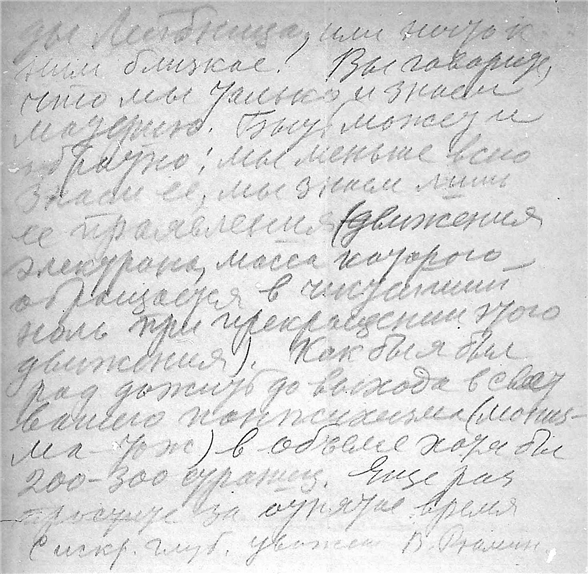 ды Лейбница, или нечто к
ним близкое! Вы говорите,
что мы только и знаем
материю. Быть может и
обратно: мы меньше всего
знаем ее, мы знаем лишь
ее проявления (движения
электрона, масса которого
обращается в чистейший
ноль при прекращении этого
движения). Как бы я был
рад дожить до выхода в свет
вашего панпсихизма (мониз-
ма - тож) в объеме хотя бы
200-300 страниц. Еще раз
простите за отнятое время
С искр. глуб. уважен В. Рюмин.